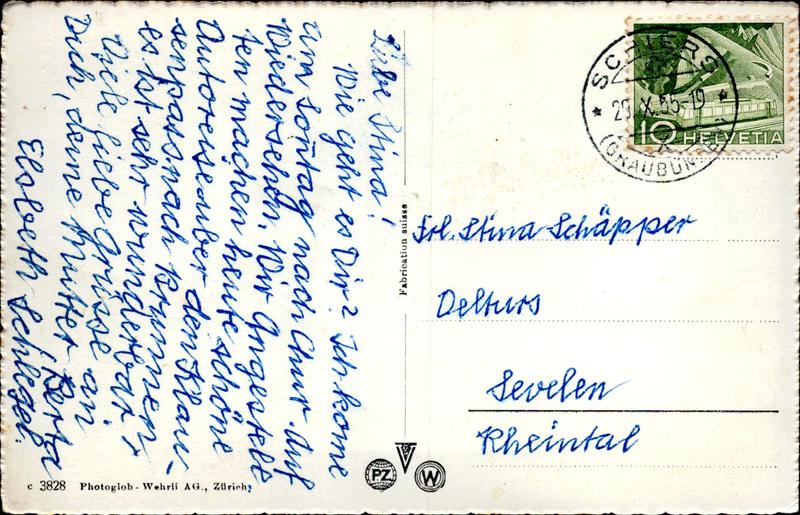 Liebe Stina!
Wie geht es Dir? Ich kome
am Sontag nach Chur. Auf
Wiedersehen. Wir Angestell
ten machen heute schöne
Autoreise über den Klau-
senpass nach Brunnen
es ist sehr wunderbar
Viele liebe Grüsse an
Dich, deine Mutter, Berta
Elsbeth Schlegel.
Fabrication suisse
SCHIERS
X. 55-19
(GRAUBÜN
10 HELVETIA
Frl. Stina Schäpper
Delturs
Sevelen
Rheintal
PZ
W
c 3828 Photoglob-Wehrli AG., Zürich